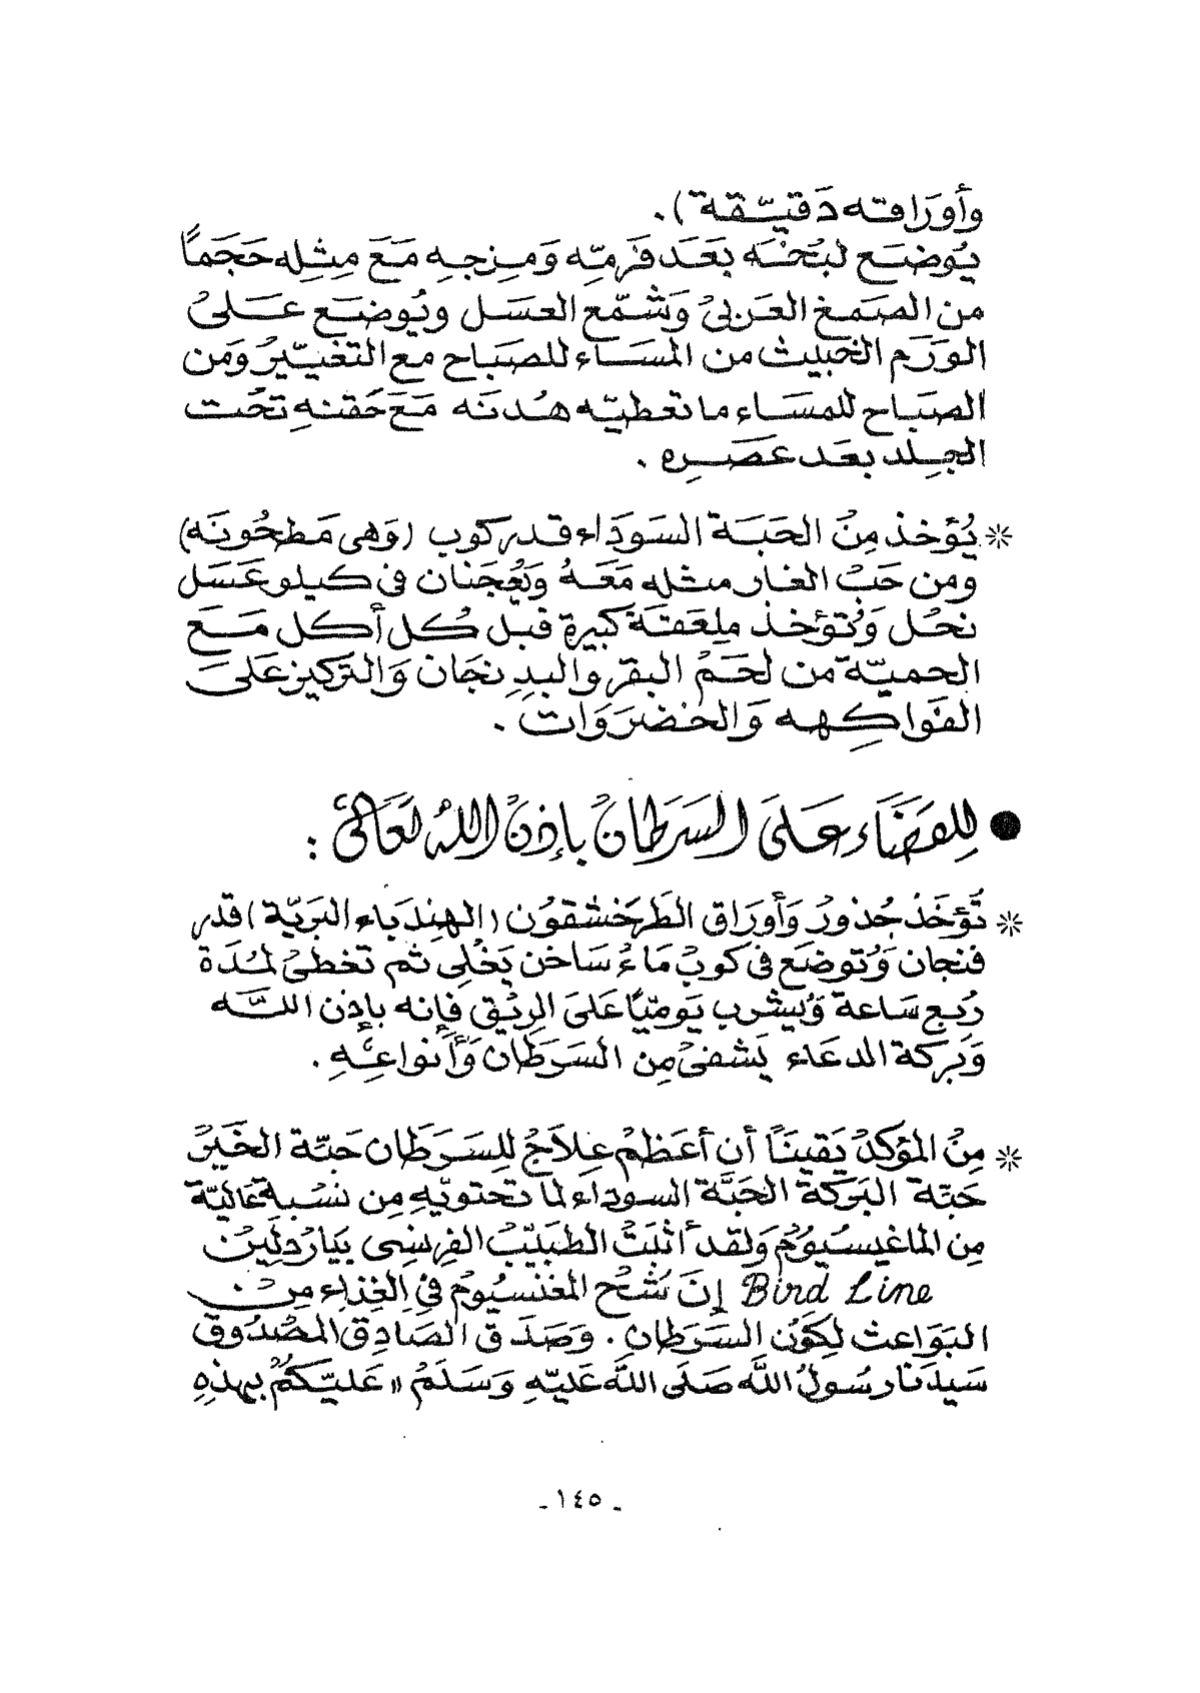 وأورَاقه دَقيّقة ).
يُوضَع لبُخه بَعَد فَرمّه وَمزجه مَعَ مِثله حَجَماً
من الصَمغ العَربىْ وَشمّع العسَل ويُوضَع عَلىُ
الورَم الخبيث من المسَاء للصبَاح مع التغييّر وَمَن
الصبَاح للمسَاء ما تعطيّه هُدنَه مَعَ حَقنهِ تحُت
الجِلد بعَد عصَره .
* يُؤخذ مِنُ الحَبَة السَودَاء قدر كوب (وَهى مَطحُونَه)
ومن حَبُ الغار مثله مَعَهُ وَيُعجَنان فى كيلو عَسَل
نحُل وَتُؤخذ ملِعَقَة كبيرة قبل كُل أكل مَعَ
الحميّة من لحَمُ البقر والبدِ نجَان وَالتركيز عَلىَ
الفَواكِهه وَالخضرَوَات .
● لِلقضَاء عَلىَ السَرطانُ بإذنُ اللهُ تعَالىَ :
* تُؤخَذ جُذورُ وَأورَاق الطَرخشقوُن (الهِندبَاء البَريّة ) قدر
فنجان وَتُوضَع فى كوبُ مَاءُ سَاخن يَغُلى ثم تغطىُ لمُدة
رُبع سَاعة وَيُشرب يَوميّاً عَلىَ الرِيْق فإنه بإذن اللَّه
وَبركة الدعَاء يَشفىْ مِن السَرَطان وَأنواعِهِ .
* مِنُ المؤكدُ يَقينَاً أن أعَظمُ عِلاَجُ للِسَرَطَان حَبّة الخَيرُ
حَبّة البَركة الحَبَّة السوداء لما تحتويّهِ مِن نسُبة عَاليّة
مِن الماغيسيُومُ وَلقد أثبَتُ الطبيّبُ الفرنسِى بيَارُ دلِينَ
Bird Line إنَ شُحْ المغنسيُومُ فىِ الغِذاء مِنُ
البَوَاعث لِكَوَنُ السَرطان . وَصَدَق الصَادِق المصْدُوق
سَيدنَا رسُولُ اللَّه صَلَى اللَّه عَليّهِ وَسَلَمُ « عَليّكمُ بهذِهِ
ـ ١٤٥ ـ